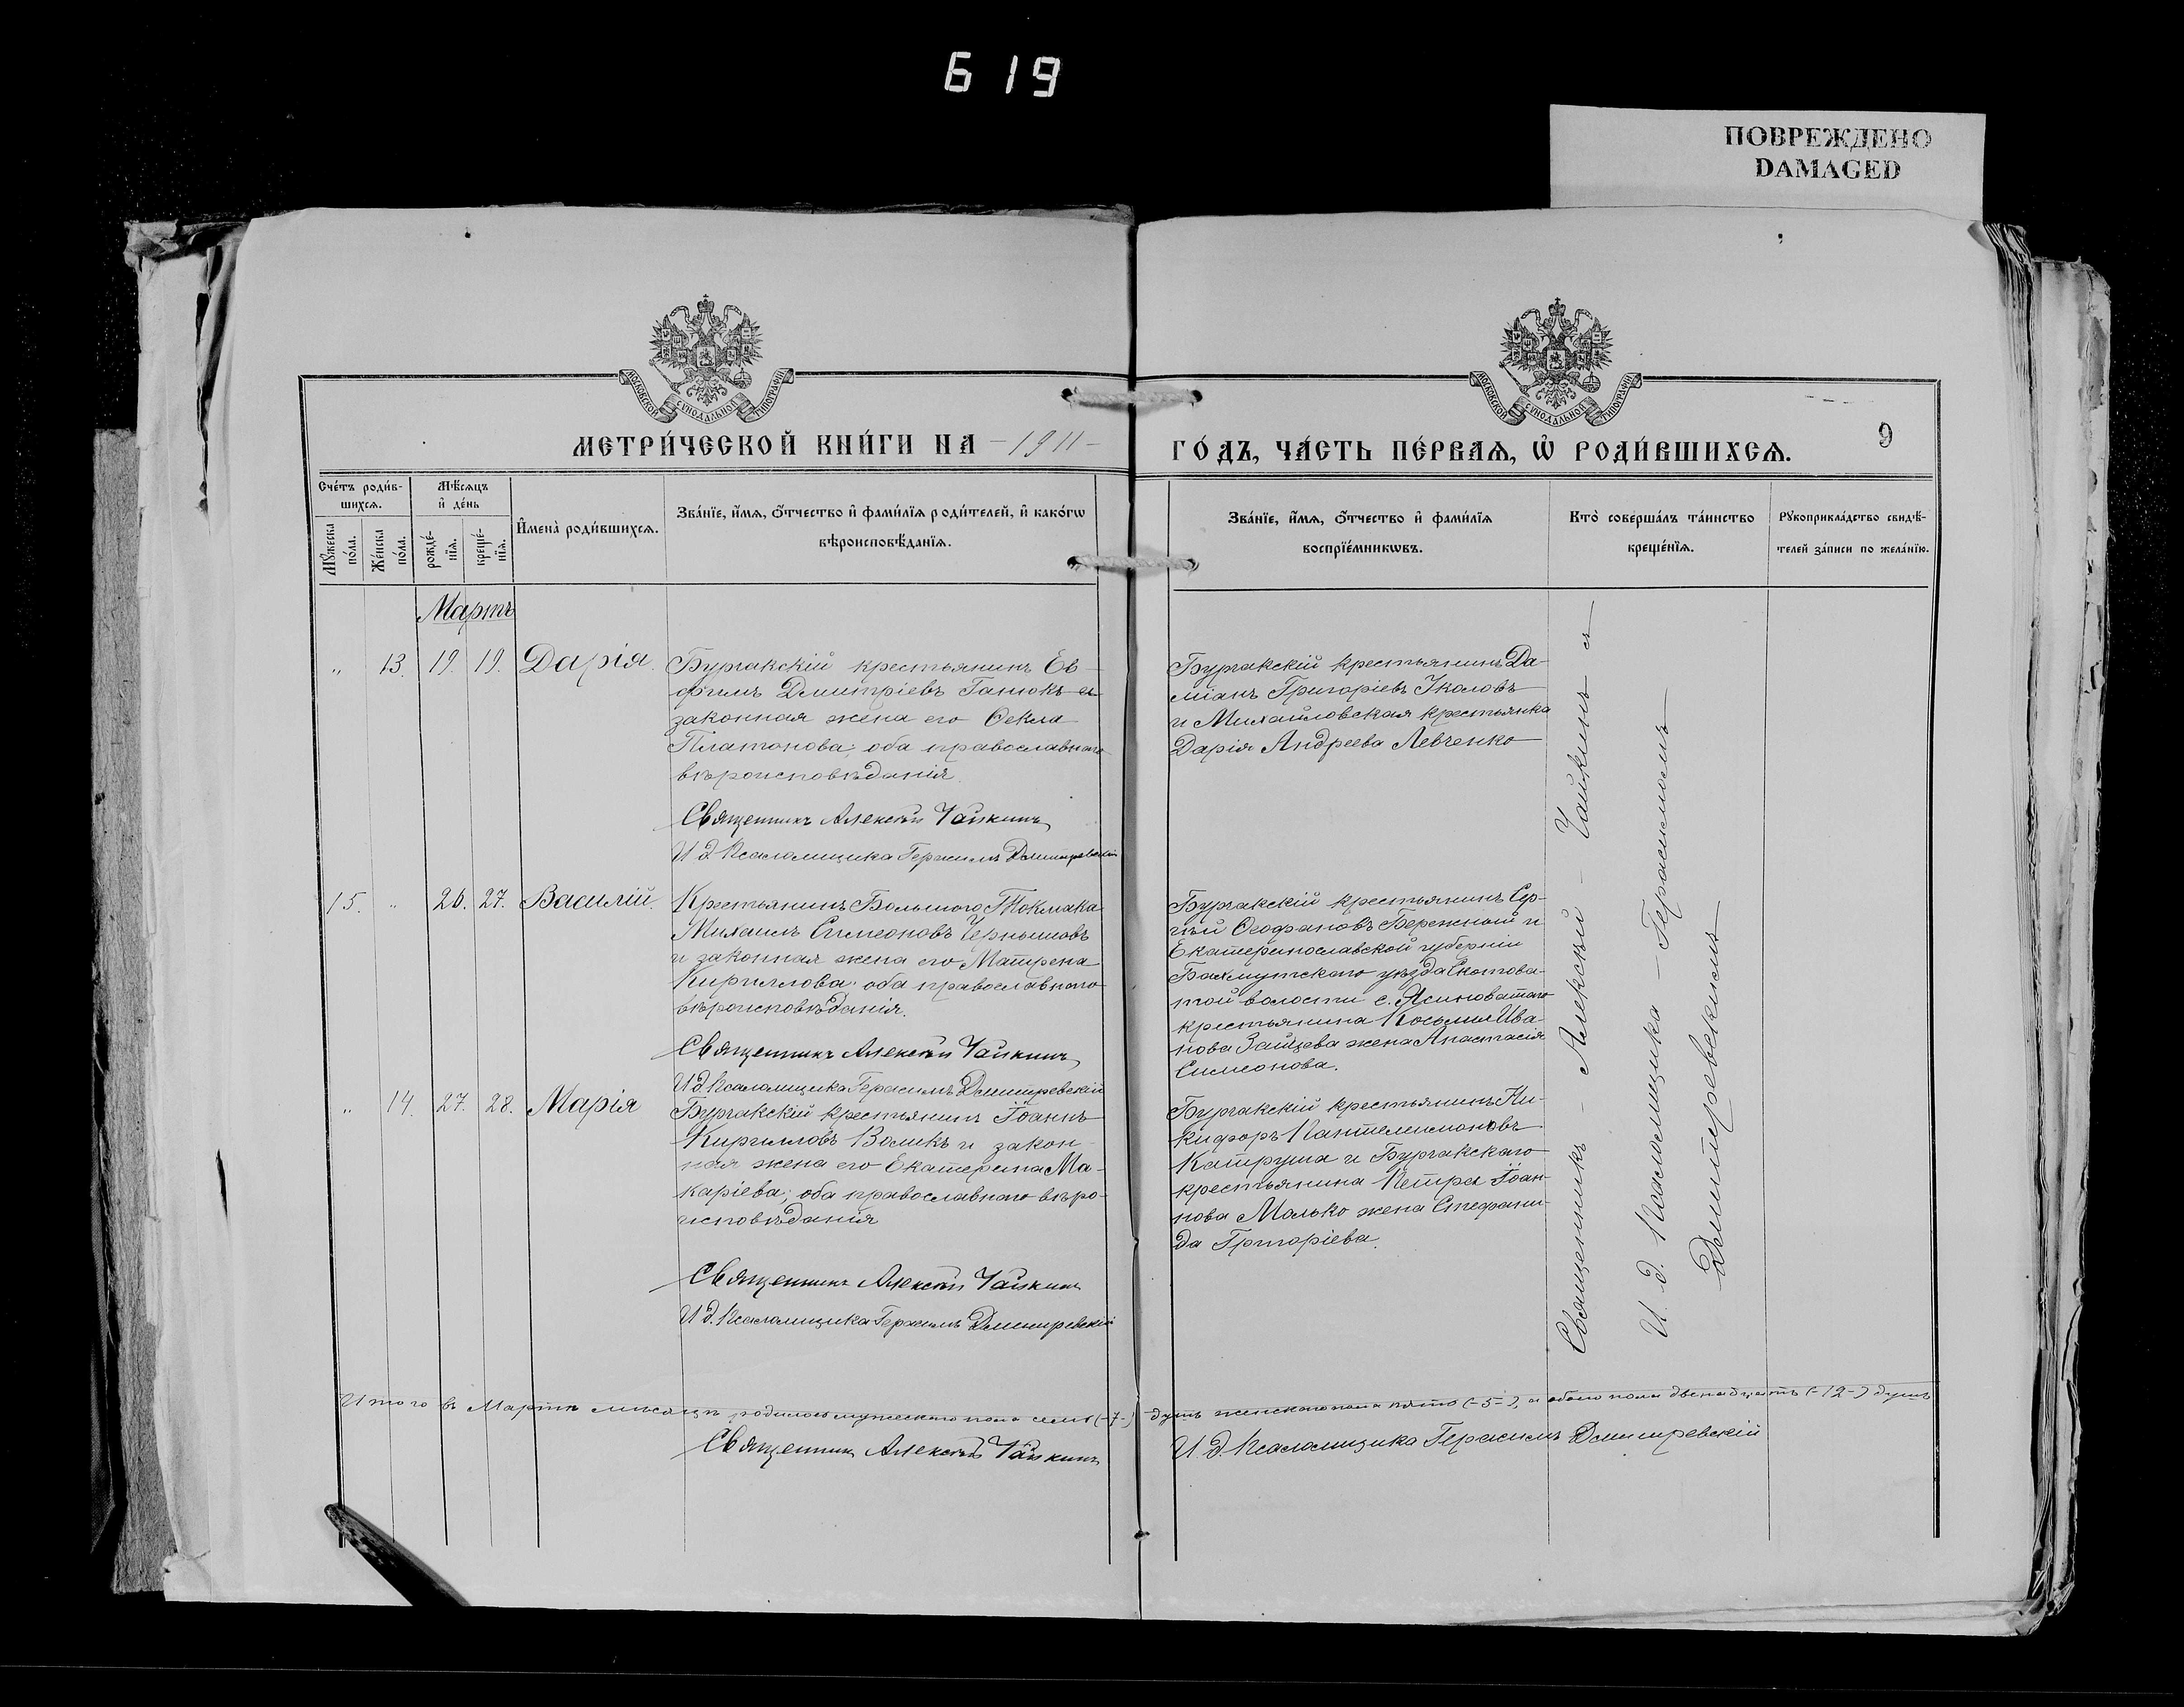 619
ПОВРЕЖДЕНО
DAMAGED
МОСКОВСКОЙ СѴНОДАЛЬНОЙ ТИПОГРАФІИ
МОСКОВСКОЙ СѴНОДАЛЬНОЙ ТИПОГРАФІИ
МЕТРИ́ЧЕСКОЙ КНИ́ГИ НА -1911-
ГО́ДЪ, ЧА́СТЬ ПЕ́РВАѦ, Ѡ҆ РОДИ́ВШИХСѦ.
9
Сче́тъ роди́в-
шихсѧ.
Мꙋ́жеска
по́ла.
Же́нска
по́ла.
Мѣ́сѧцъ
и҆ де́нь
рожде́-
нїѧ.
креще́-
нїѧ.
И҆мена̀ роди́вшихсѧ.
Зва́нїе, и҆́мѧ, ѻ҆́тчество и҆ фами́лїѧ роди́телей, и҆ како́гѡ
вѣроисповѣ́данїѧ.
Зва́нїе, и҆́мѧ, ѻ҆́тчество и҆ фами́лїѧ
воспрїе́мникѡвъ.
Кто̀ соверша́лъ та́инство
креще́нїѧ.
Рꙋкоприкла́дство свидѣ́-
телей за́писи по жела́нїю.
Мартъ
" 13. 19. 19. Дарія.
Бургакскій крестьянинъ Ев-
фимъ Димитріевъ Ганюкъ и
законная жена его Ѳекла
Платонова; оба православнаго
вѣроисповѣданія.
Священникъ Алексѣй Чайкинъ
И д. Псаломщика Герасимъ Димитревскій
Бургакскій крестьянинъ Да-
міанъ Григоріевъ Уколовъ
и Михайловская крестьянка
Дарія Андреева Левченко
15. " 26. 27. Василій.
Крестьянинъ Большого Токмака
Михаилъ Симеоновъ Чернышовъ
и законная жена его Матрена
Кириллова; оба православнаго
вѣроисповѣданія.
Священникъ Алексѣй Чайкинъ
И д. Псаломщика Герасимъ Димитревскій
Бургакскій крестьянинъ Сер-
гій Ѳеофановъ Бережной и
Екатеринославской губерніи
Бахмутскаго уѣзда Скотова-
той волости с. Ясиноватаго
крестьянина Косьмы Ива-
нова Зайцева жена Анастасія
Симеонова.
" 14. 27. 28. Марія
Бургакскій крестьянинъ Іоаннъ
Кирилловъ Воликъ и закон-
ная жена его Екатерина Ма-
каріева; оба православнаго вѣро-
исповѣданія
Священникъ Алексѣй Чайкинъ
И д. Псаломщика Герасимъ Димитревскій
Бургакскій крестьянинъ Ни-
кифоръ Пантелеимоновъ
Катруша и Бургакскаго
крестьянина Петра Іоан-
нова Малько жена Стефани-
да Григоріева.
Священникъ - Алексѣй - Чайкинъ съ
И. д. Псаломщика - Герасимомъ
Димитревскимъ
Итого въ Мартѣ мѣсяцѣ родилось мужескаго пола семь (-7-) душъ женскаго пола пять (-5-), а обоего пола двенадцать (-12-) душъ
Священникъ Алексѣй Чайкинъ
И. д. Псаломщика Герасимъ Димитревскій